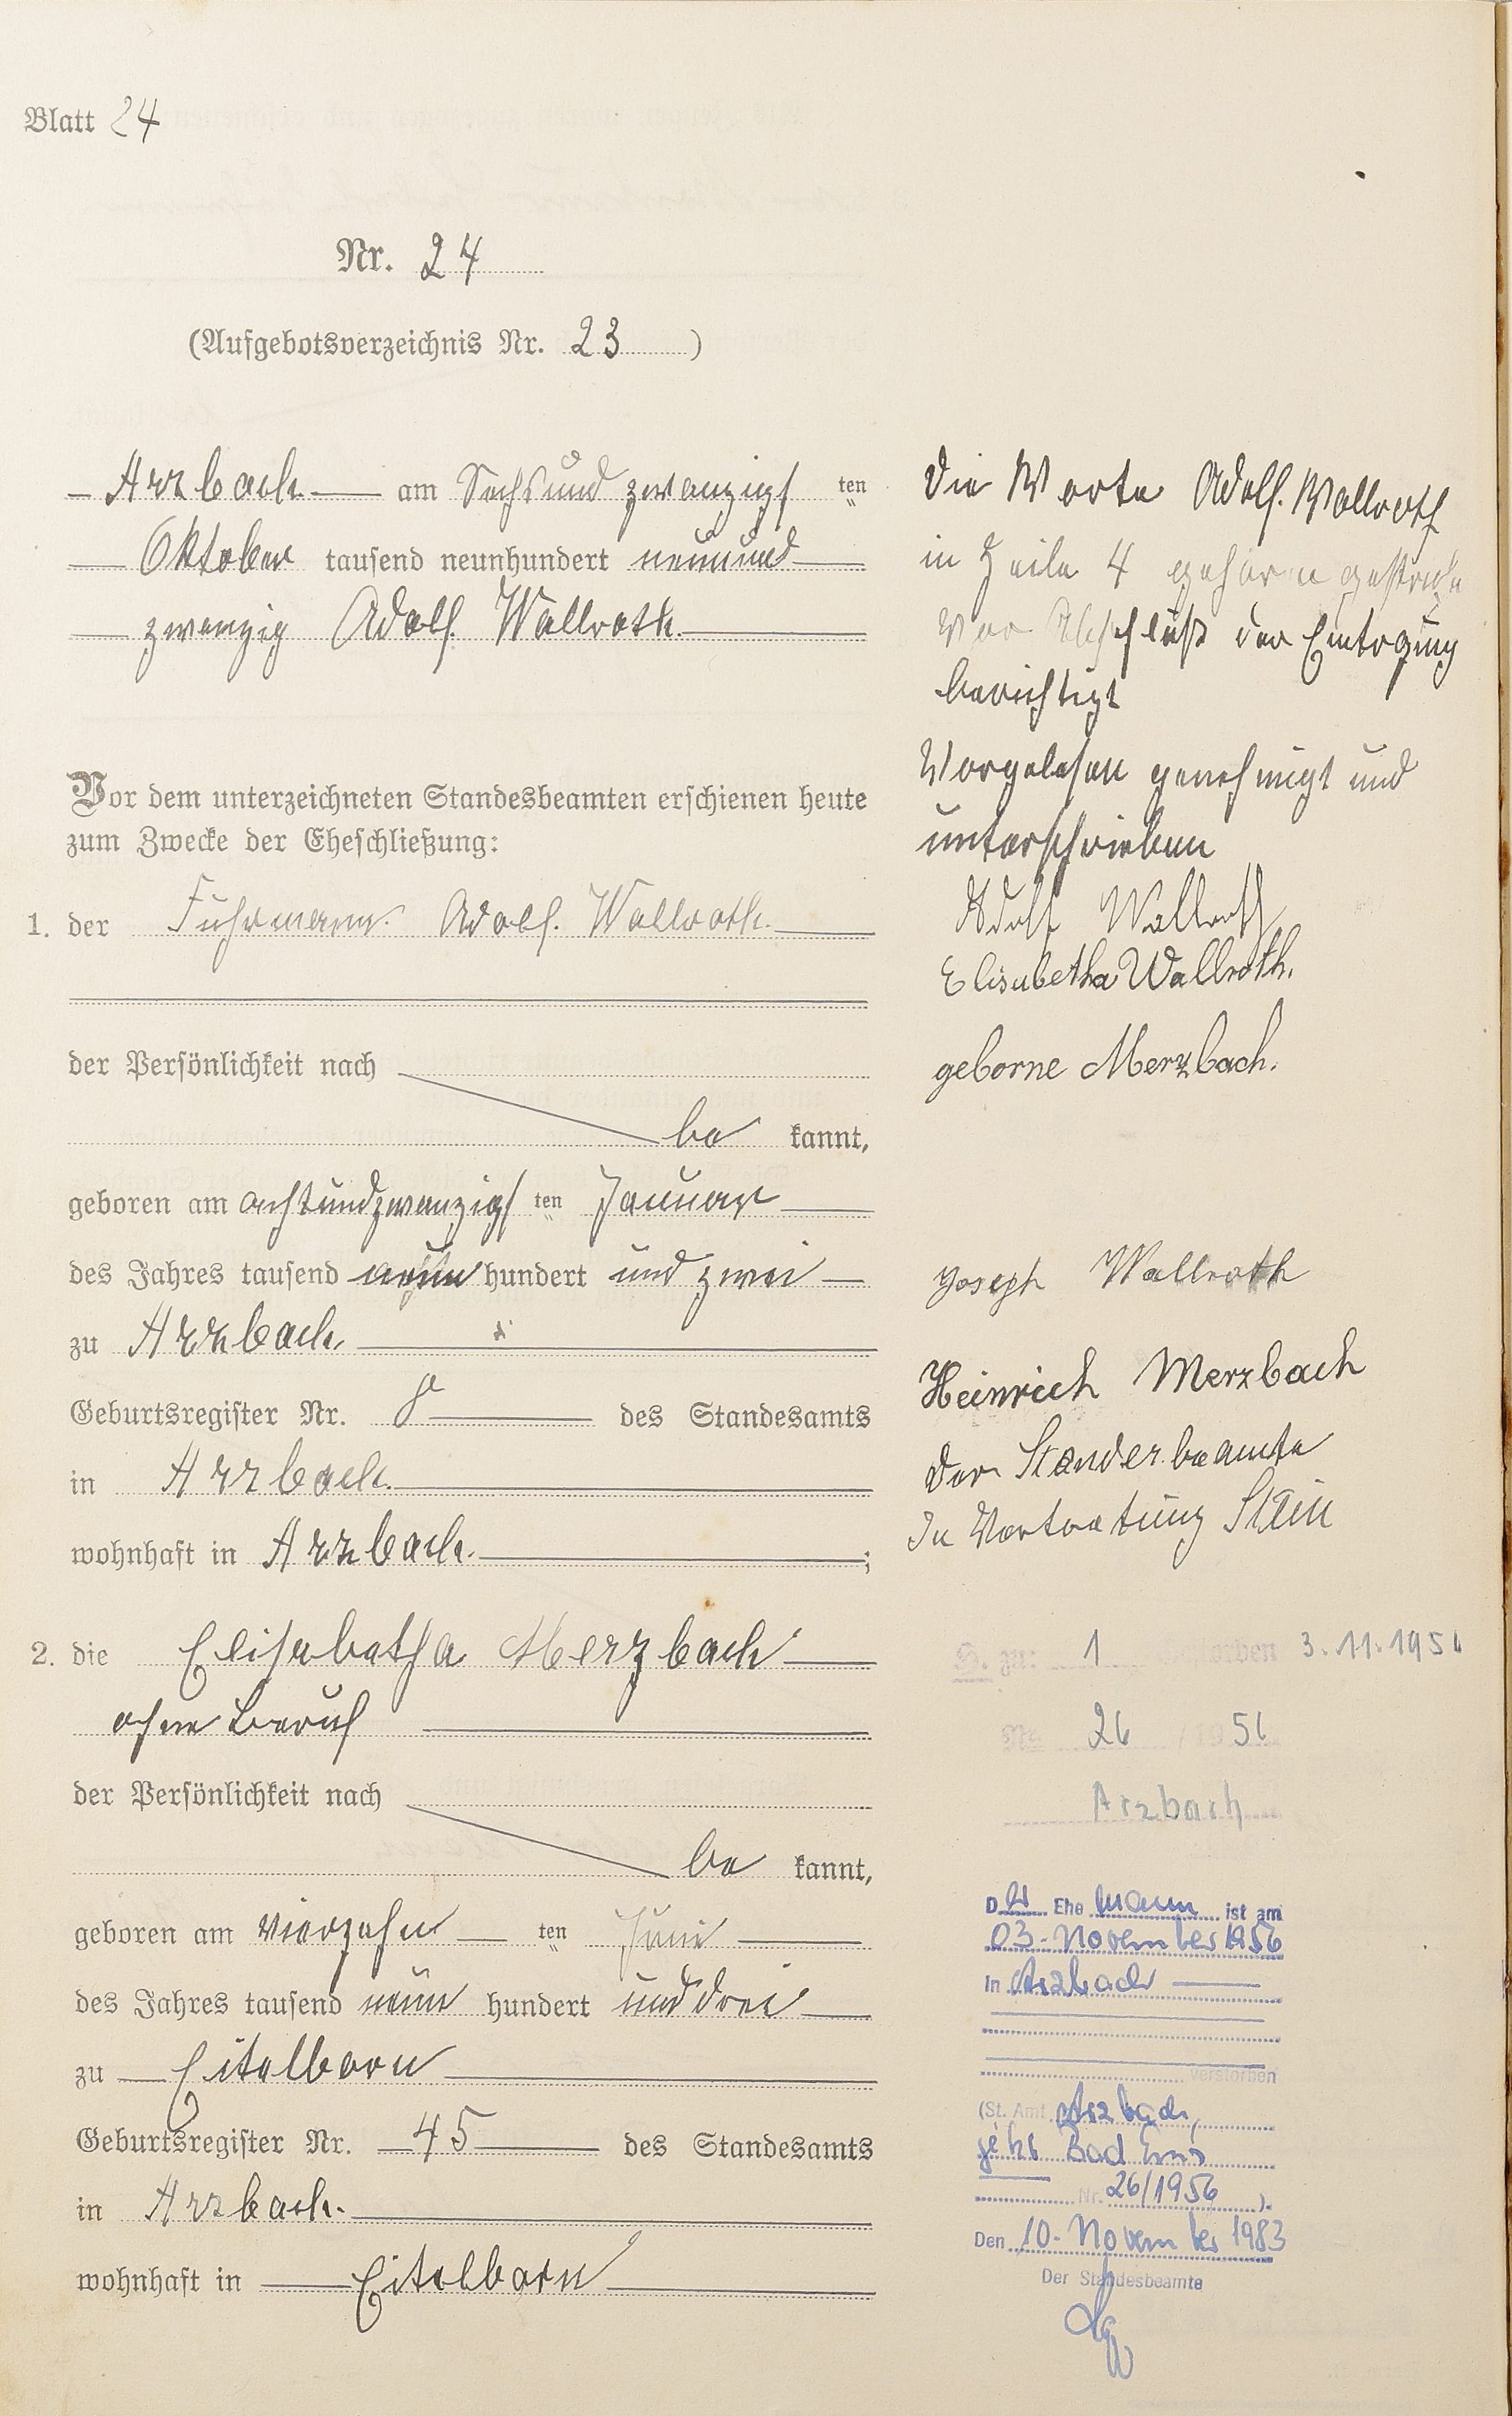 Blatt 24
Nr. 24
(Aufgebotsverzeichnis Nr. 23)
Arzbach am Sechsundzwanzigsten
Oktober tausend neunhundert neunund
zwanzig Adolf Wallroth
Vor dem unterzeichneten Standesbeamten erschienen heute
zum Zwecke der Eheschließung:
1. der Fuhrmann Adolf Wallroth
der Persönlichkeit nach
be kannt,
geboren am achtundzwanzigsten Januar
des Jahres tausend neun hundert und zwei
zu Arzbach
Geburtsregister Nr. des Standesamts
in Arzbach
wohnhaft in Arzbach ;
2. die Elisabetha Merzbach
ohne Beruf
der Persönlichkeit nach
be kannt,
geboren am vierzehn ten Juni
des Jahres tausend neun hundert und drei
zu Eitelborn
Geburtsregister Nr. 45 des Standesamts
in Arzbach
wohnhaft in Eitelborn
Die Worte Adolf Wallroth
in Zeile 4
vor Abschluß der Eintragung
berichtigt
Vorgelesen genehmigt und
unterschrieben
Adolf Wallroth
Elisabetha Wallroth.
geborne Merzbach.
Joseph Wallroth
Heinrich Merzbach
Der Standesbeamte
In Vertretung Stein
H. zu: 1 3.11.1956
Nr. 26 / 1956
Arzbach
Der Ehe mann ist am
03. November 1956
in Arzbach
verstorben
(St. Amt Arzbach,
jetzt Bad Ems
Nr. 26/1956 ).
Den 10. November 1983
Der Standesbeamte